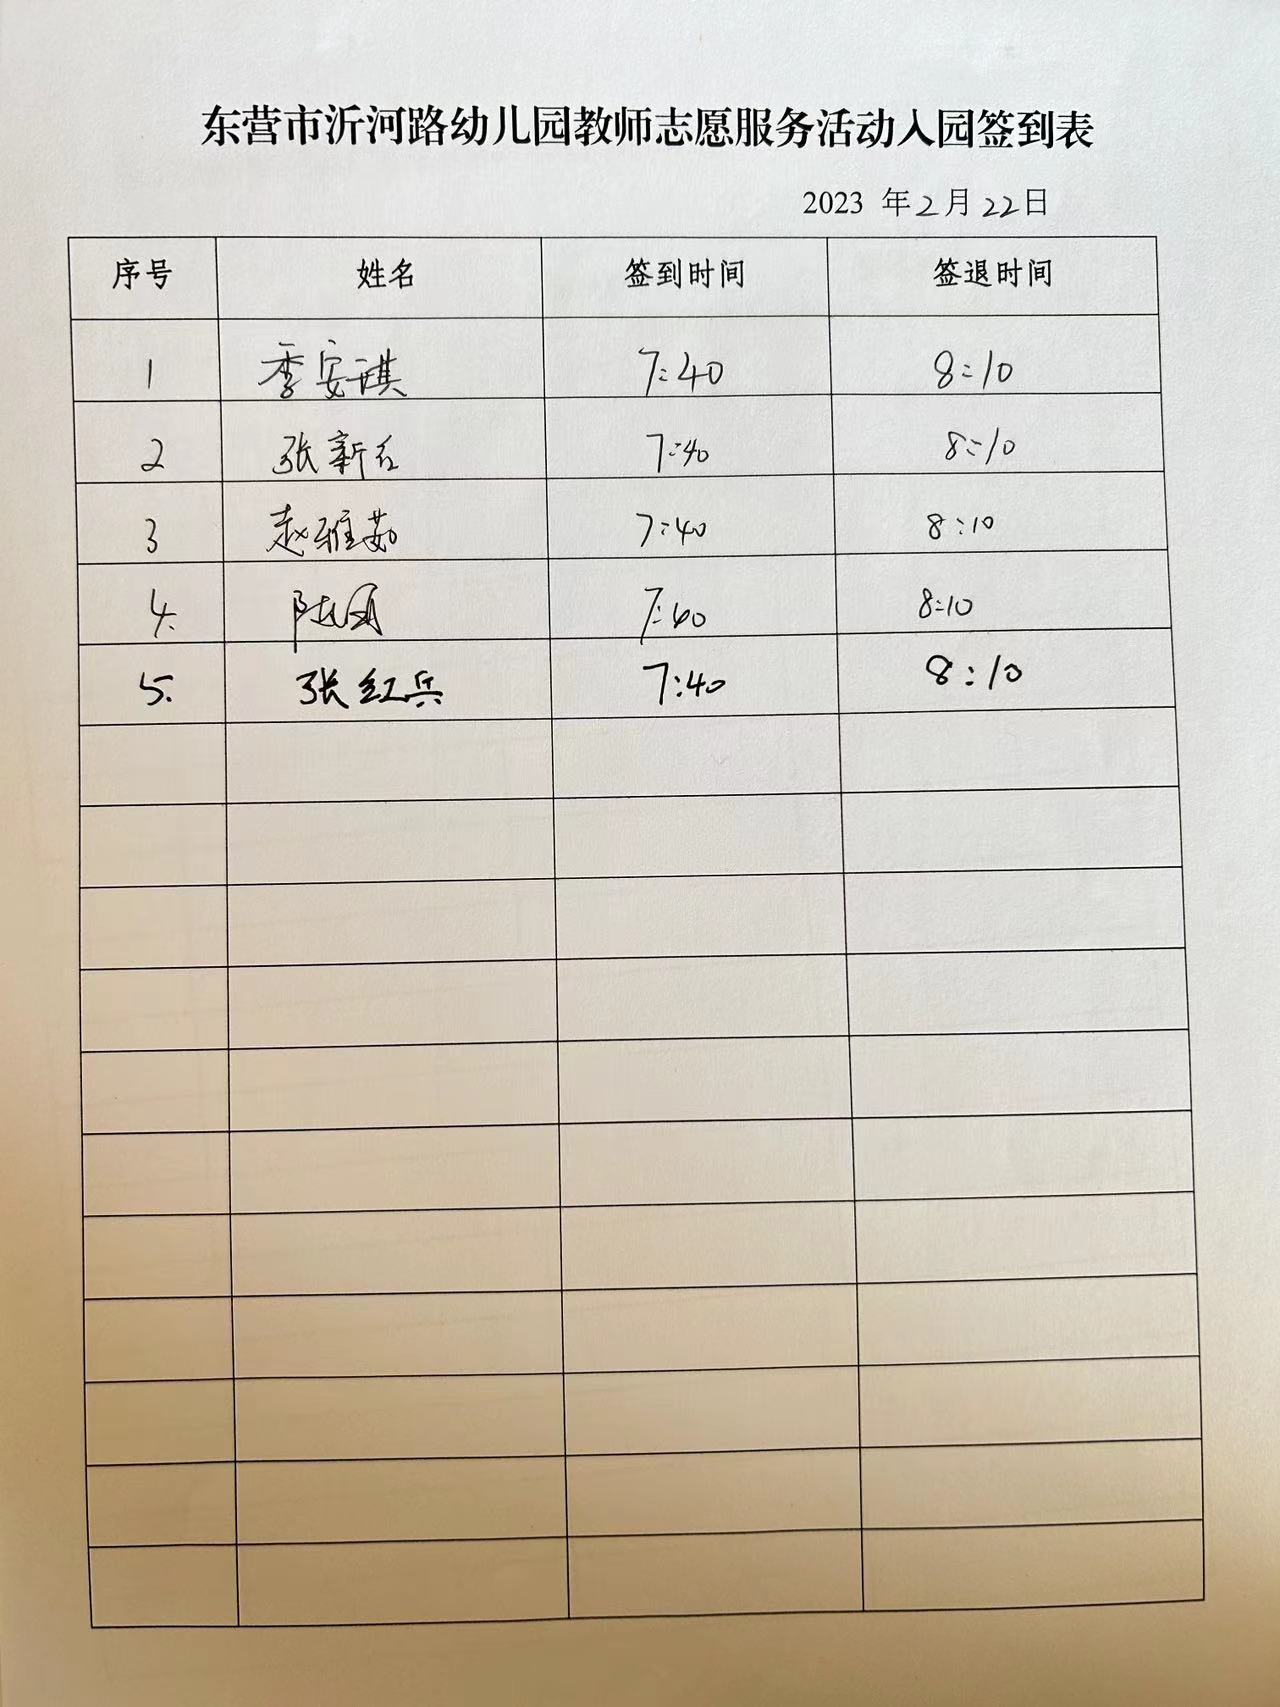 东营市沂河路幼儿园教师志愿服务活动入园签到表
2023 年2月22日
序号 姓名 签到时间 签退时间
1 季安琪 7:40 8:10
2 张新 7:40 8:10
3 赵雅茹 7:40 8:10
4. 7:40 8:10
5. 张红兵 7:40 8:10